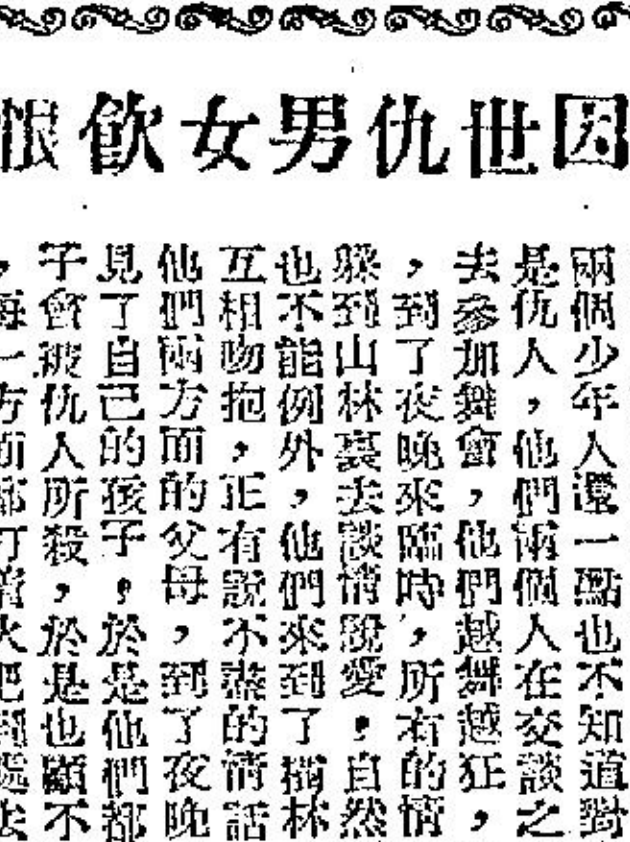 因世仇男女飲恨
兩個少年人還一點也不知道對
是仇人，他們兩個人在交談之
去參加舞會，他們越舞越狂，
，到了夜晚來臨時，所有的情
躲到山林裏去談情說愛，自然
也不能例外，他們來到了樹林
互相吻抱，正有說不盡的情話
他們兩方面的父母，到了夜晚
見了自己的孩子，於是他們都
子會被仇人所殺，於是也顧不
，每一方面都打着火把到處去